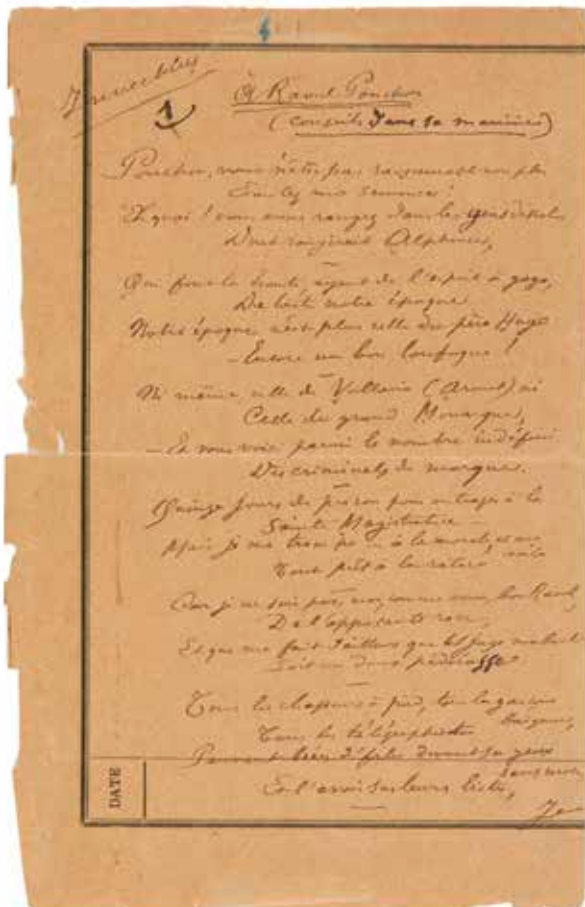 4
Invectives
1
À Raoul Ponchon
(conseils dans sa manière)
Ponchon, vous n'êtes pas raisonnable non plus
Eh quoi ! vous vous rangez dans les
Dont rougirait Alphonse,
Qui font la honte, ayant de l'esprit à gogo,
De toute notre époque
Notre époque n'est plus celle du père Hugo
– Encore un bon loufoque !
Ni même celle de Voltaire (Arouet) ni
Celle du grand Monarque,
– Et vous voici parmi le nombre indéfini
Des criminels de marque.
Quinze jours de prison pour outrages à la
Sainte Magistrature –
Mais je me trompe — à la morale, et me
voilà
Tout prêt à la rature
Car je ne suis pas, moi, comme vous, bon Raoul,
De l'opposante race,
Et que me fait d'ailleurs que tel juge
Soit un dur pédérasse
Tous les chasseurs à pied, tous les garçons
baigneurs,
Tous les télégraphistes
Peuvent bien défiler devant ses yeux
sans mœurs
Et l'avoir sur leurs listes,
Je
DATE